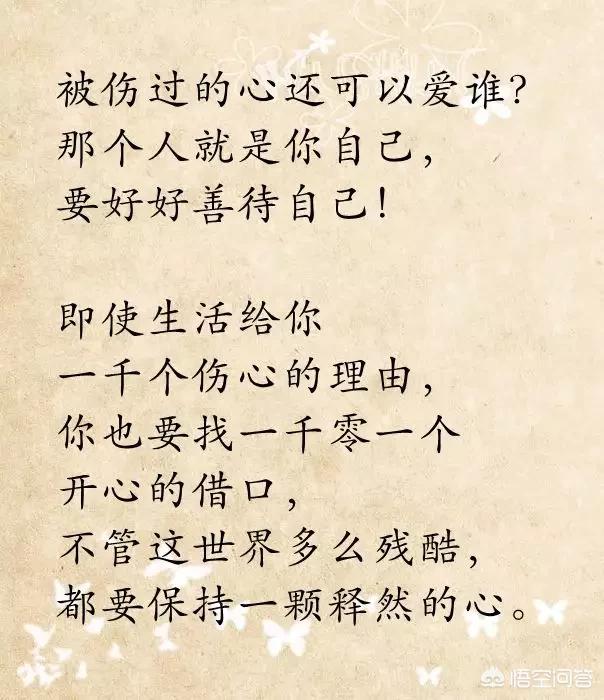 被伤过的心还可以爱谁?
那个人就是你自己,
要好好善待自己!
即使生活给你
一千个伤心的理由,
你也要找一千零一个
开心的借口,
不管这世界多么残酷,
都要保持一颗释然的心。
悟空问答